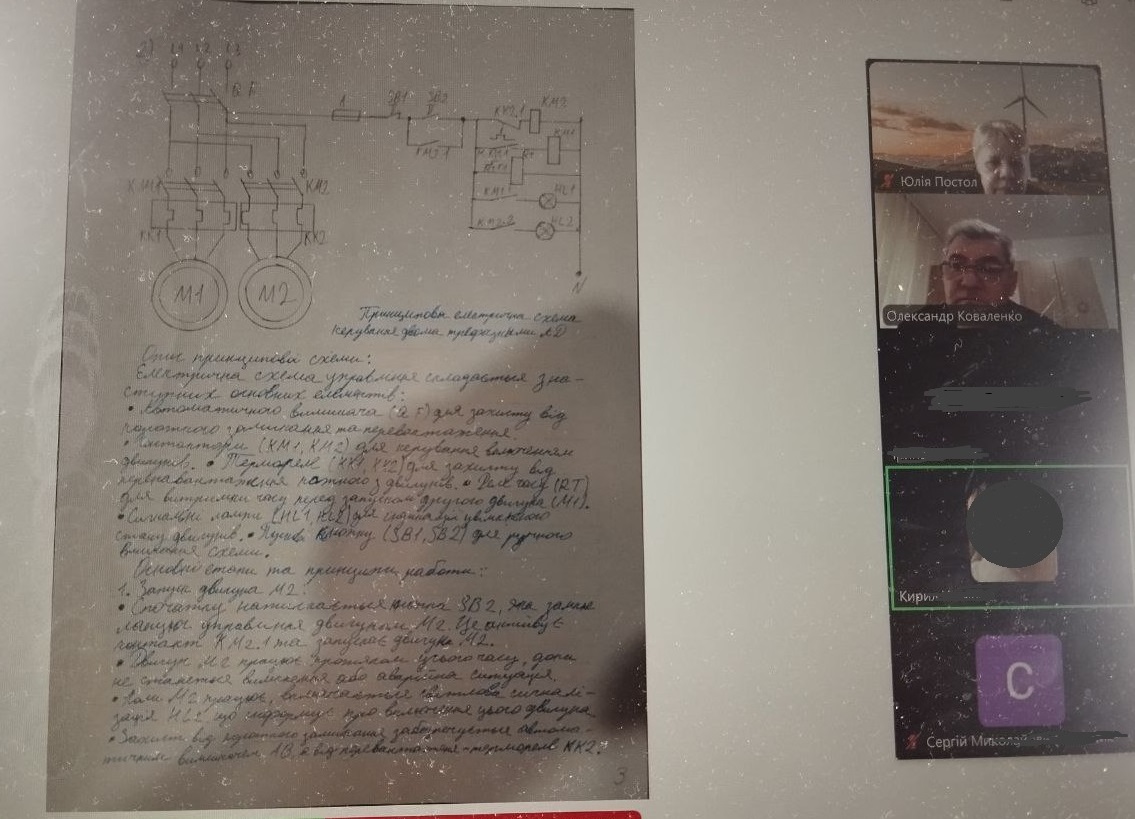 2) L1 L2 L3
QF
1 SB1 SB2 KK2.1 KM2
KM2.1 KM1
RT
KM1 HL1
KM2.2 HL2
KM1 KM2
KK1 KK2
M1 M2
N
Принципова електрична схема
керування двома трифазними АД
Опис принципової схеми:
Електрична схема управління складається з на-
ступних основних елементів:
• Автоматичного вимикача (QF) для захисту від
короткого замикання та перевантаження.
• Контактори (KM1, KM2) для керування включенням
двигунів. • Термореле (KK1, KK2) для захисту від
перевантаження кожного з двигунів. • Реле часу (RT)
для витримки часу перед запуском другого двигуна (M1).
• Сигнальні лампи (HL1, HL2) для
стану двигунів. • кнопки (SB1, SB2) для ручного
вмикання схеми.
Основні етапи та принципи роботи:
1. Запуск двигуна M2:
• Спочатку натискається кнопка SB2, яка
управління двигуном M2. Це активує
контакт KM2.1 та запускає двигун M2.
• Двигун M2 працює протягом цього часу, доки
не станеться вимкнення або аварійна ситуація.
• Коли M2 працює, включається світлова сигналі-
зація HL2 що інформує про включення цього двигуна
• Захист від короткого замикання автома-
тичним вимикачем AB а від - термореле KK2.
3
Юлія Постол
Олександр Коваленко
Кирил
C
Сергій Микола